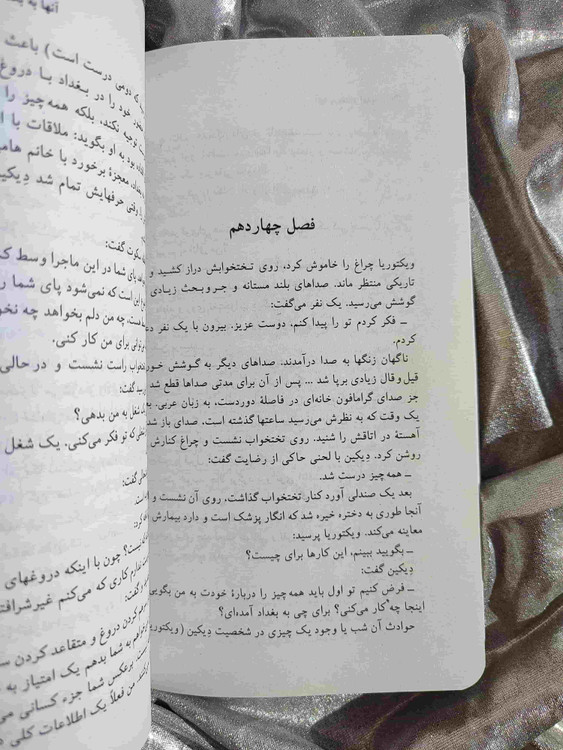 آنها به
که دومی درست است) باعث
خود را در بغداد با دروغ
توجیه نکند، بلکه همه‌چیز را
بود به او بگوید: ملاقات با
معجزهٔ برخورد با خانم
وقتی حرفهایش تمام شد دیکین
سکوت گفت:
پای شما در این ماجرا وسط
این است که نمی‌شود پای شما را
چه من دلم بخواهد چه
برای من کار کنی.
راست نشست و در حالی
گفت:
شغل به من بدهی؟
که تو فکر می‌کنی. یک شغل
گفت:
نیست؟ چون با اینکه دروغهای
ندارم کاری که می‌کنم
و گفت:
کردن دروغ و متقاعد کردن
به شما بدهم یک امتیاز به
برعکس شما جزء کسانی
من فعلاً یک اطلاعات کلی
فصل چهاردهم
ویکتوریا چراغ را خاموش کرد، روی تختخوابش دراز کشید و
تاریکی منتظر ماند. صداهای بلند مستانه و جروبحث زیادی
گوشش می‌رسید. یک نفر می‌گفت:
ــ فکر کردم تو را پیدا کنم، دوست عزیز. بیرون با یک نفر
کردم.
ناگهان زنگها به صدا درآمدند. صداهای دیگر به گوشش خورد
قیل‌وقال زیادی برپا شد ... پس از آن برای مدتی صداها قطع شد
جز صدای گرامافون خانه‌ای در فاصلهٔ دوردست، به زبان عربی.
یک وقت که به نظرش می‌رسید ساعتها گذشته است، صدای باز شدن
آهستهٔ در اتاقش را شنید. روی تختخواب نشست و چراغ کنارش
روشن کرد. دیکین با لحنی حاکی از رضایت گفت:
ــ همه‌چیز درست شد.
بعد یک صندلی آورد کنار تختخواب گذاشت، روی آن نشست و
آنجا طوری به دختره خیره شد که انگار پزشک است و دارد بیمارش
معاینه می‌کند. ویکتوریا پرسید:
ــ بگویید ببینم، این کارها برای چیست؟
دیکین گفت:
ــ فرض کنیم تو اول باید همه‌چیز را دربارهٔ خودت به من بگویی
اینجا چه کار می‌کنی؟ برای چی به بغداد آمده‌ای؟
حوادث آن شب یا وجود یک چیزی در شخصیت دیکین (ویکتوریا